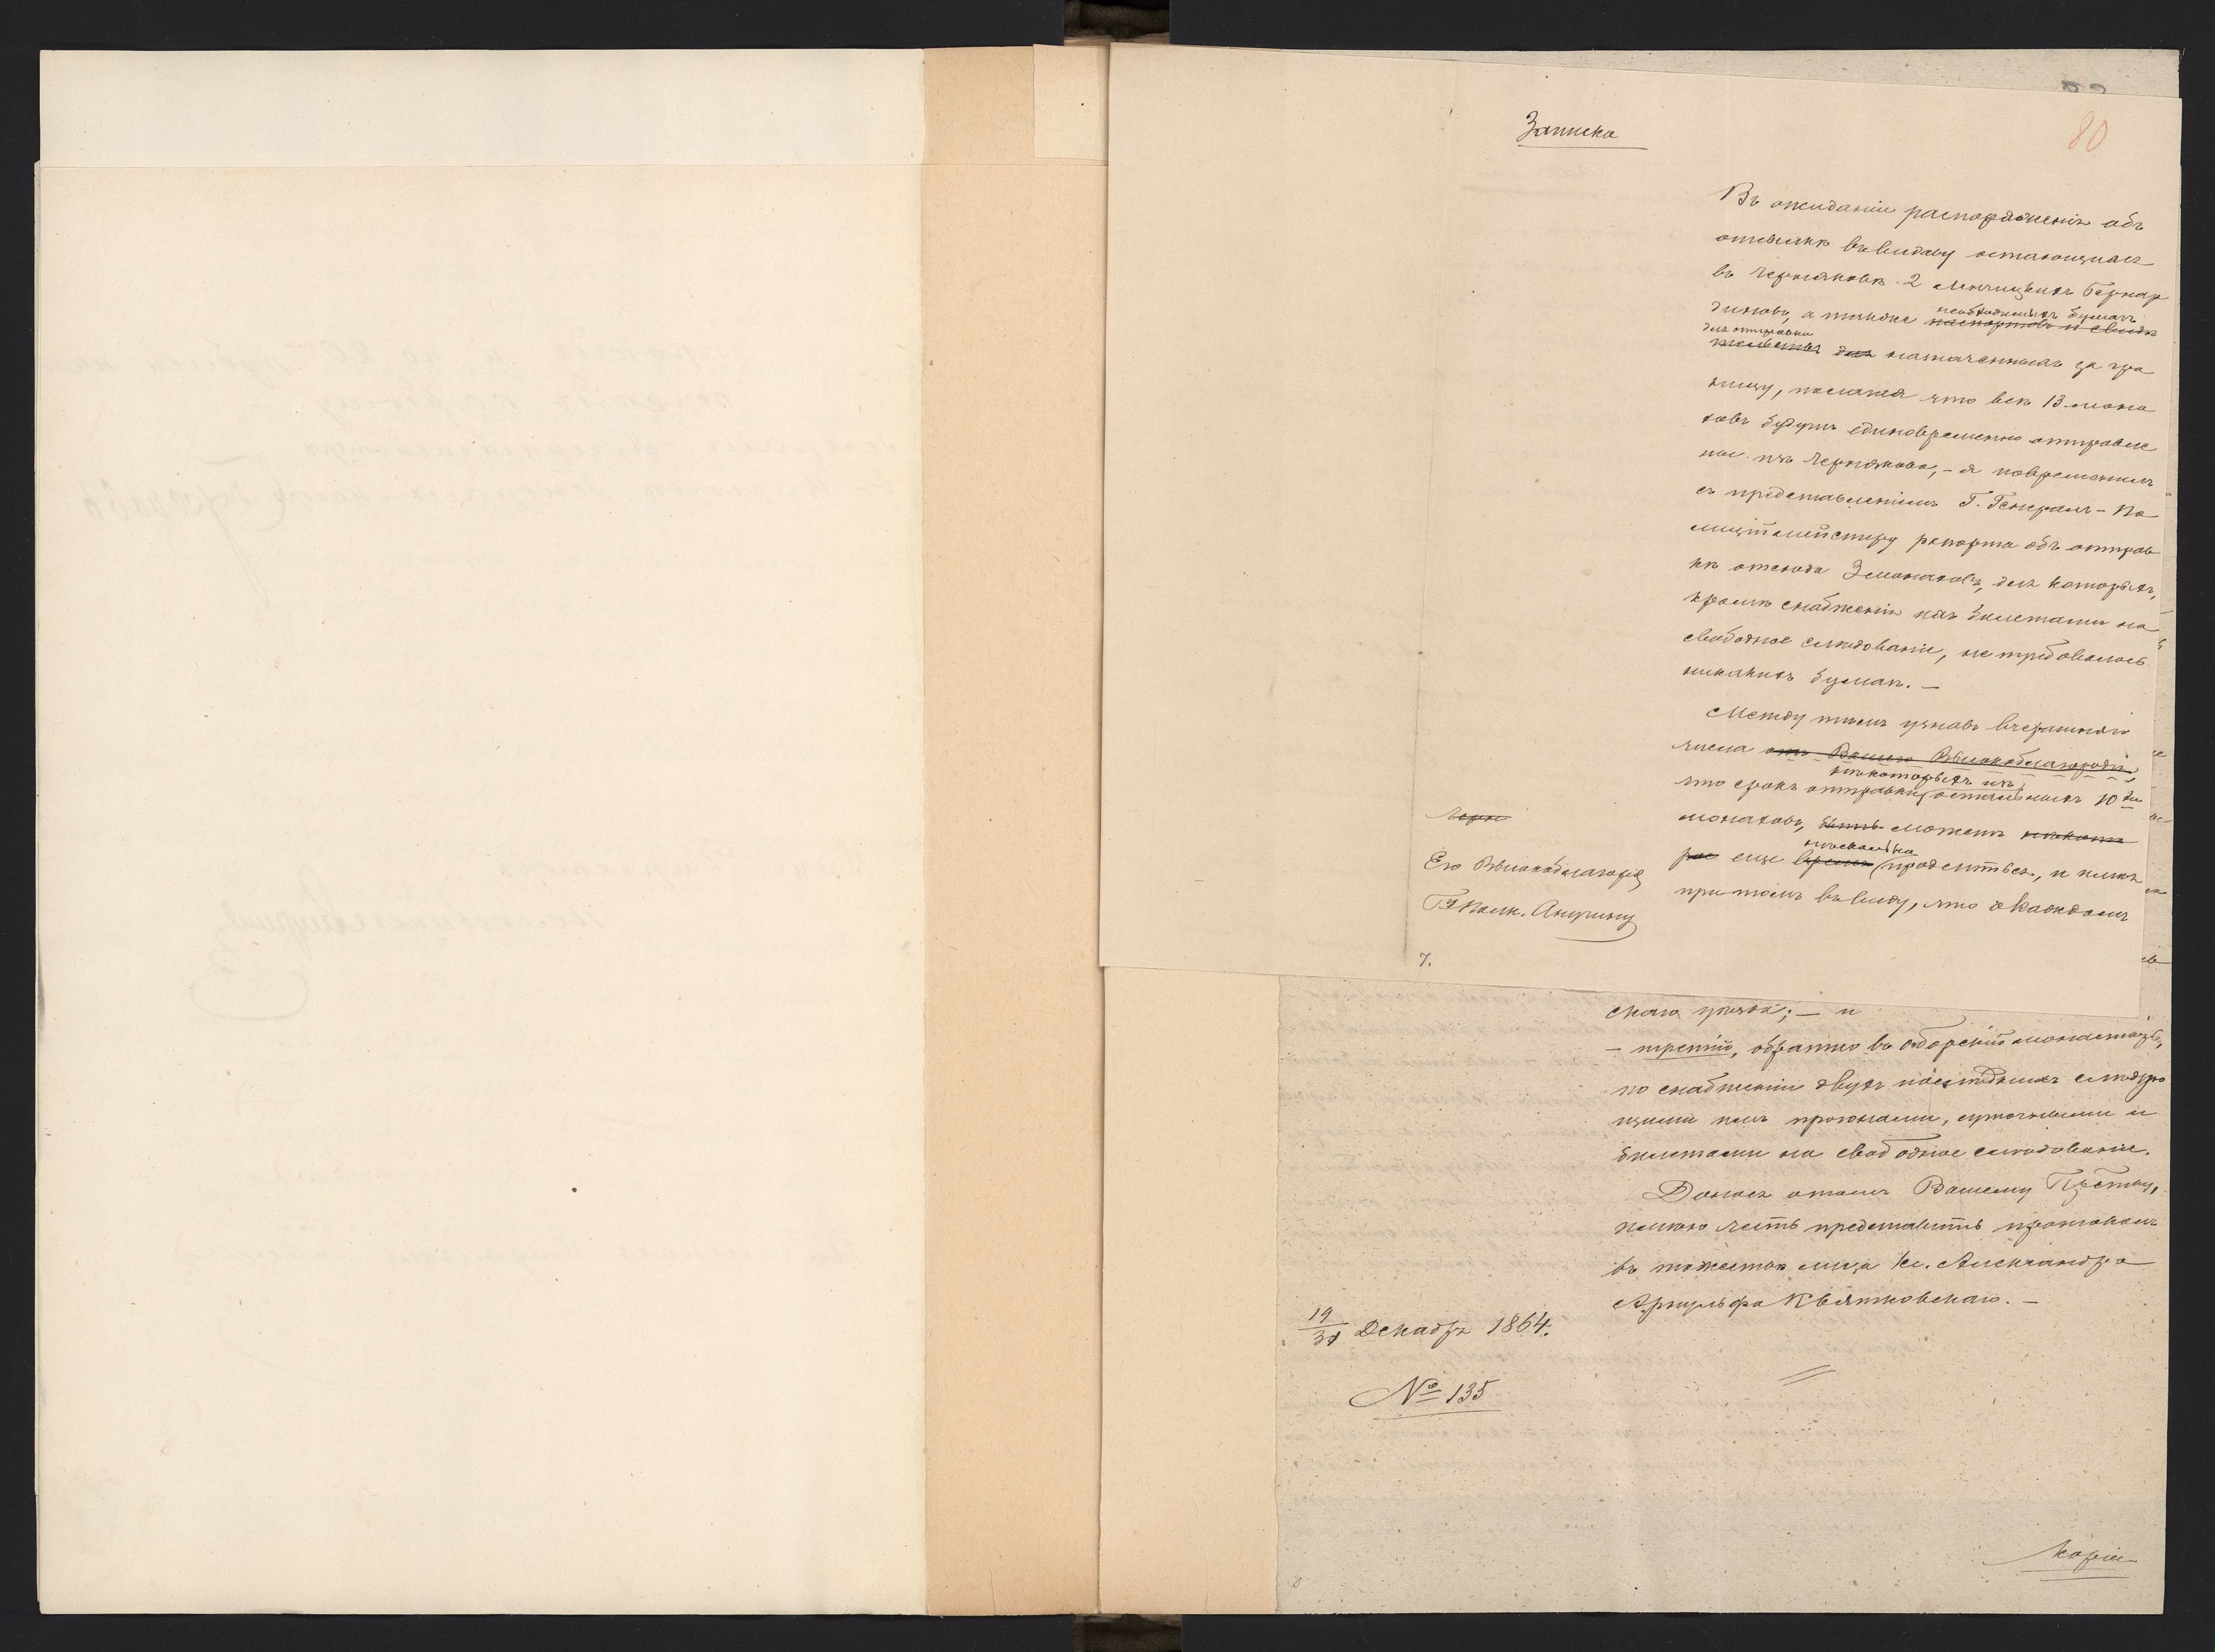 Записка
80
Въ ожиданіи распоряженія объ
отсылкѣ въ Видаву остающихся
въ Черняковѣ 2 Ленчицкихъ Бернар
диновъ, а также необходимыхъ бумагъ
паспортовъ и свидѣ
для отправки
тельствъ для назначенныхъ за гра
ницу, полагая что всѣ 13 мона
ховъ будутъ единовременно отправле
ны изъ Чернякова, - я повременилъ
съ представленіемъ Г. Генералъ-По
лиціймейстеру рапорта объ отправ
кѣ отсюда 3 монаховъ, для которыхъ,
кромѣ снабженія ихъ билетами на
свободное слѣдованіе, не требовалось
никакихъ бумагъ. —
Между тѣмъ узнавъ вчерашняго
числа отъ Вашего Высокоблагородія,
нѣкоторыхъ изъ
что срокъ отправки остальныхъ 10 ти
монаховъ, быть можетъ нѣкото
рое еще время нѣсколько продлиться, и имѣя
при томъ въ виду, что о каждомъ
Черн
Его Высокоблагородію
Гну Полк. Анучину
7.
скаго уѣзда; — и
- третій, обратно въ Оборскій монастырь,
по снабженіи двухъ послѣднихъ слѣдую
щими имъ прогонами, суточными и
билетами на свободное слѣдованіе.
Донося о томъ Вашему Пр̃ству,
имѣю честь представить протоколъ
въ тожествѣ лица Кс. Александра
Арнульфа Квятковскаго. —
19/31 Декабря 1864.
№ 135